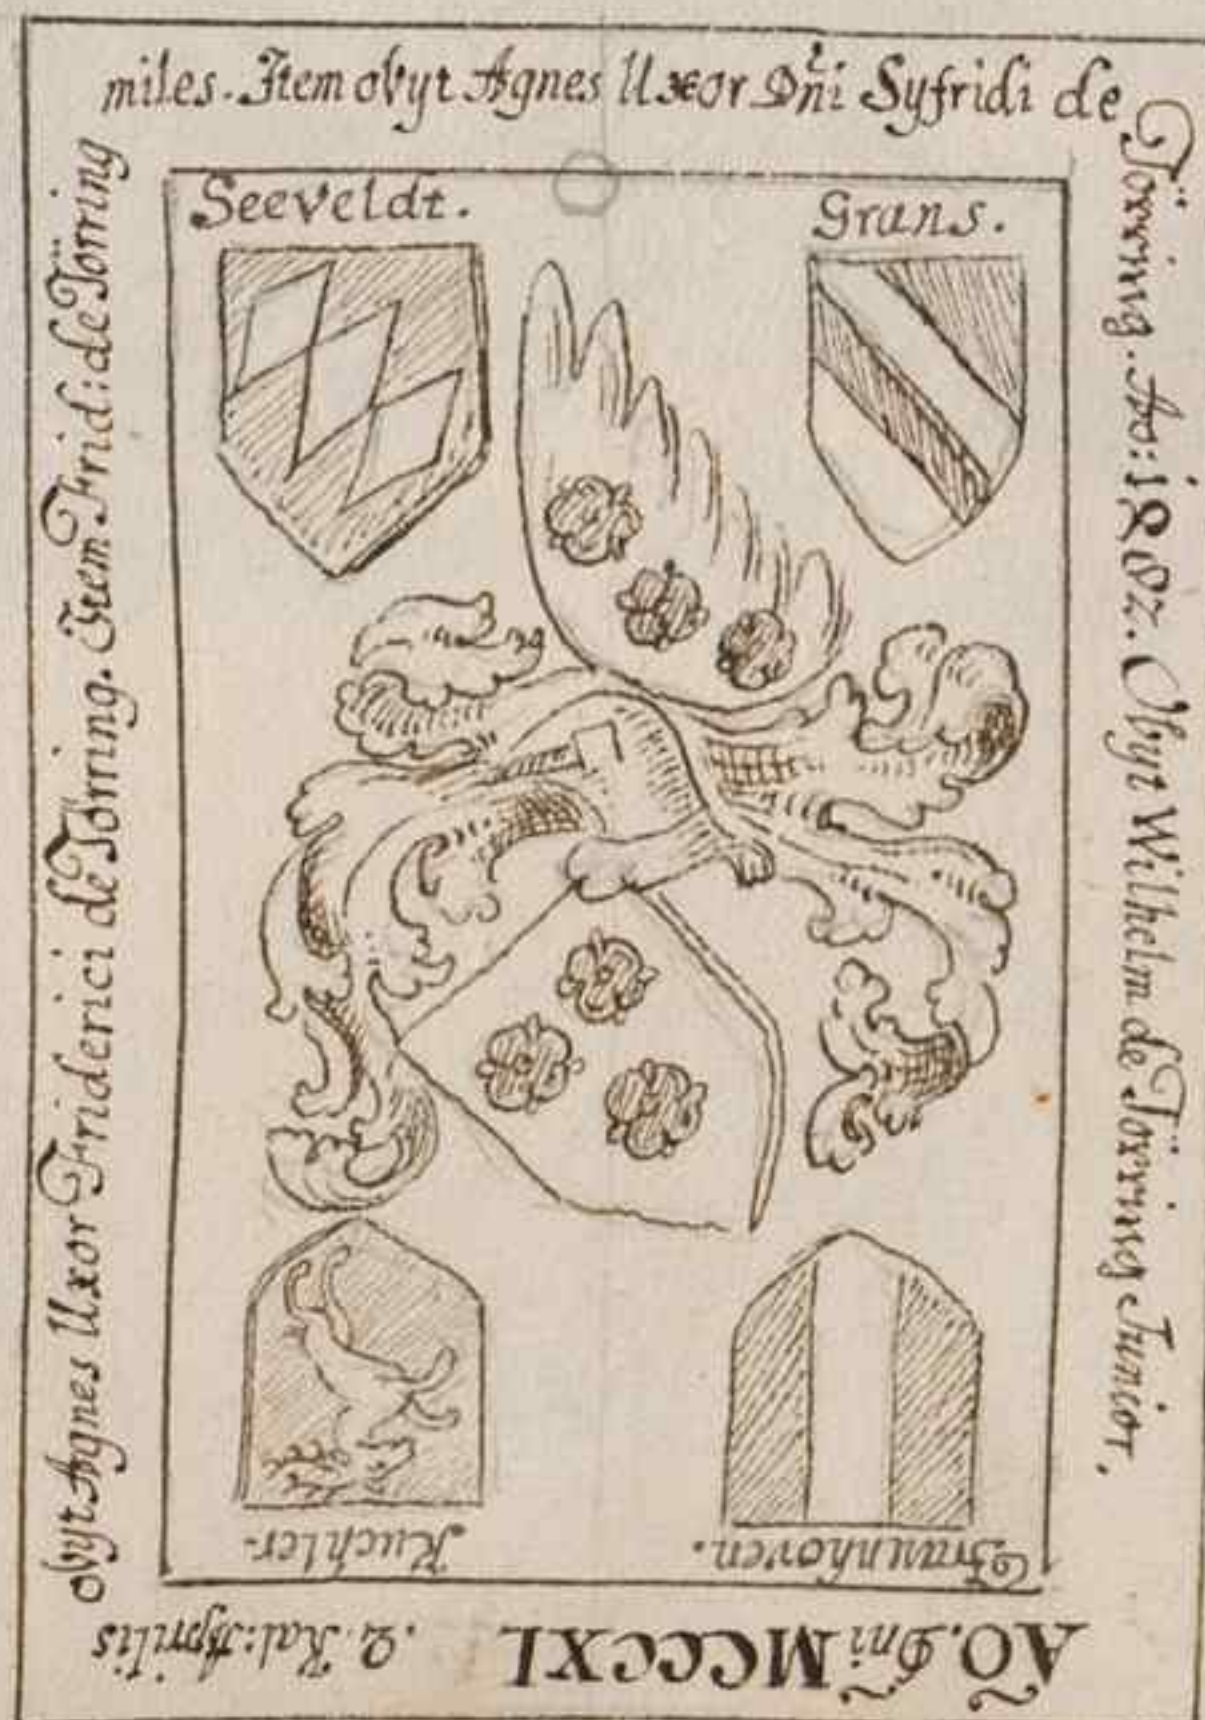 AÕ. Dñi MCCCXL .4. Kal: Aprilis
obyt Agnes Uxor Friderici de Törring. Item Frid: de Törring
miles. Item obyt Agnes Uxor Dñi Syfridi de
Törring. Ao: 1482. Obyt Wilhelm de Törring Junior.
Seeveldt.
Grans.
Kuchler.
Fraunhoven.